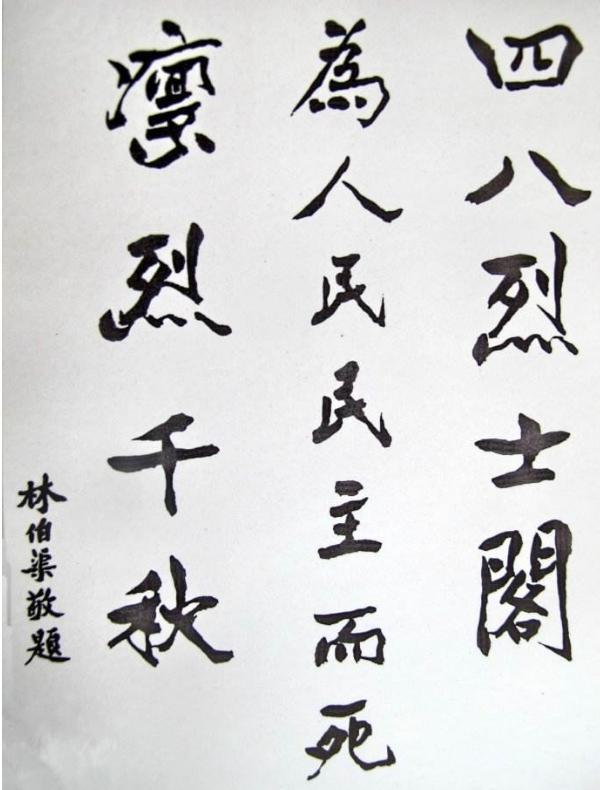 四八烈士閣
為人民民主而死
凜烈千秋
林伯渠敬題